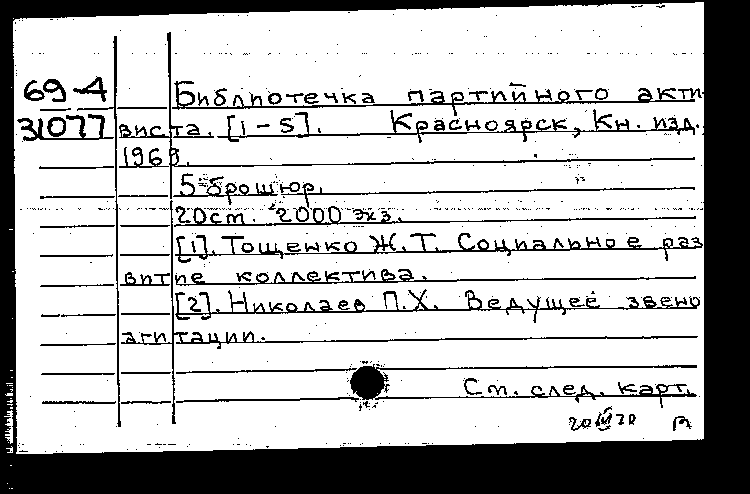 69-4 Библиотечка партийного акти-
31077 виста. [1-5]. Красноярск, Кн. изд.,
1969.
5 брошюр.
20см. 2000 экз.
[1]. Тощенко Ж.Т. Социальное раз
витие коллектива.
[2]. Николаев П.Х. Ведущее звено
агитации.
См. след. карт.
20 70 В